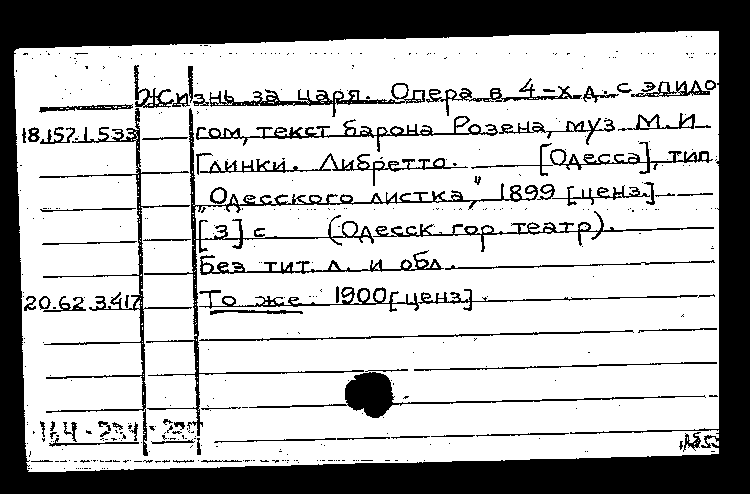 Жизнь за царя. Опера в 4-х д. с эпило-
18.157.1.533 гом, текст барона Розена, муз М. И
Глинки. Либретто. [Одесса], тип.
„Одесского листка," 1899 [ценз.]
[3] с. (Одесск. гор. театр).
Без тит. л. и обл.
20.62.3.417 То же. 1900 [ценз].
164-234